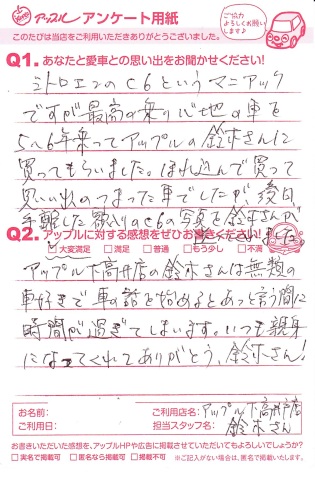 アップル アンケート用紙
ご協力
よろしくお願い
します♪
このたびは当店をご利用いただきありがとうございました。
Q1. あなたと愛車との思い出をお聞かせください!
シトロエンのC6というマニアック
ですが最高の乗り心地の車を
5〜6年乗ってアップルの鈴木さんに
買ってもらいました。ほれ込んで買って
思い入れのつまった車でしたが、後日
手離した私のC6の写真を鈴木さんが
Q2. アップルに対する感想をぜひお書きください!
☑大変満足 □満足 □普通 □もう少し □不満
アップル下高井戸店の鈴木さんは無類の
車好きで車の話を始めるとあっと言う間に
時間が過ぎてしまいます。いつも親身
になってくれてありがとう、鈴木さん!
お名前:
ご利用店名:アップル下高井戸店
ご利用日:
担当スタッフ名:鈴木さん
お書きいただいた感想を、アップルHPや広告に掲載させていただいてもよろしいでしょうか?
□実名で掲載可 □匿名なら掲載可 □掲載不可 ※ご記入がない場合は、匿名で掲載いたします。